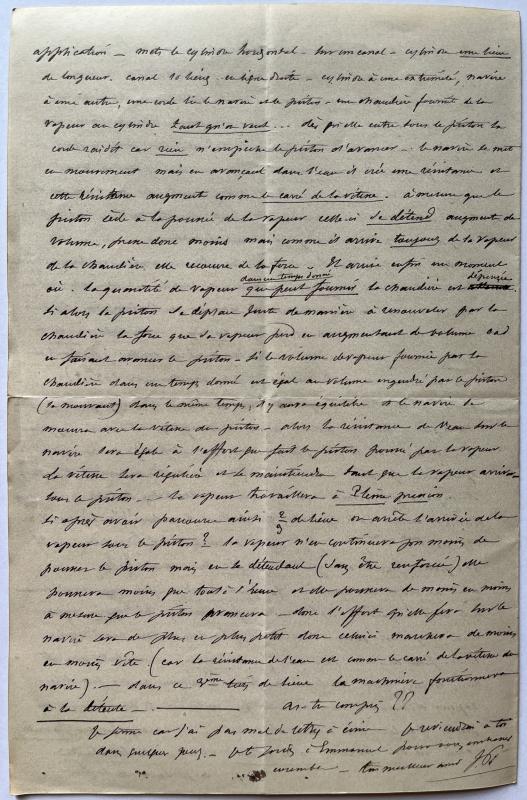 application — mets le cylindre horizontal — sur un canal — cylindre une lieue
de longueur. canal 10 lieues en ligne droite — cylindre à une extrémité, navire
à une autre, une corde lie le navire et le piston — une chaudière fournit de la
vapeur au cylindre tant qu'on veut... dès qu'elle entre sous le piston la
corde raidit car rien n'empêche le piston d'avancer — le navire se met
en mouvement mais en avançant dans l'eau il crée une résistance et
cette résistance augmente comme le carré de la vitesse. à mesure que le
piston cède à la poussée de la vapeur celle-ci se détend augmente de
volume, presse donc moins mais comme il arrive toujours de la vapeur
de la chaudière, elle recouvre de la force Il arrive enfin un moment
où la quantité de vapeur que peut fournir dans un temps donné la chaudière est dépensée
si alors le piston se déplace juste de manière à renouveler par la
chaudière la force que la vapeur perd en augmentant de volume
en faisant avancer le piston — si le volume de vapeur fournie par la
chaudière dans un temps donné est égal au volume engendré par le piston
(se mouvant) dans le même temps, il y aura équilibre et le navire se
mouvra avec la vitesse du piston — alors la résistance de l'eau sur le
navire sera égale à l'effort que fait le piston poussé par la vapeur
la vitesse sera régulière et se maintiendra tant que la vapeur arrivera
sous le piston — la vapeur travaillera à pleine pression
si après avoir parcouru ainsi de lieue on arrête l'arrivée de la
vapeur sous le piston ? la vapeur n'en continuera pas moins de
pousser le piston mais en se détendant (sans être renforcée) elle
poussera moins que tout à l'heure et elle poussera de moins en moins
à mesure que le piston avancera — donc l'effort qu'elle fera sur le
navire sera de plus en plus petit donc celui-ci marchera de moins
en moins vite (car la résistance de l'eau est comme le carré de la vitesse du
navire). — dans ce tiers de lieue la machine fonctionnera
à la détente — as-tu compris ??
car j'ai pas mal de lettres à écrire — Je reviendrai à toi
dans quelques jours — à Emmanuel pour vous
ensemble — ton meilleur ami